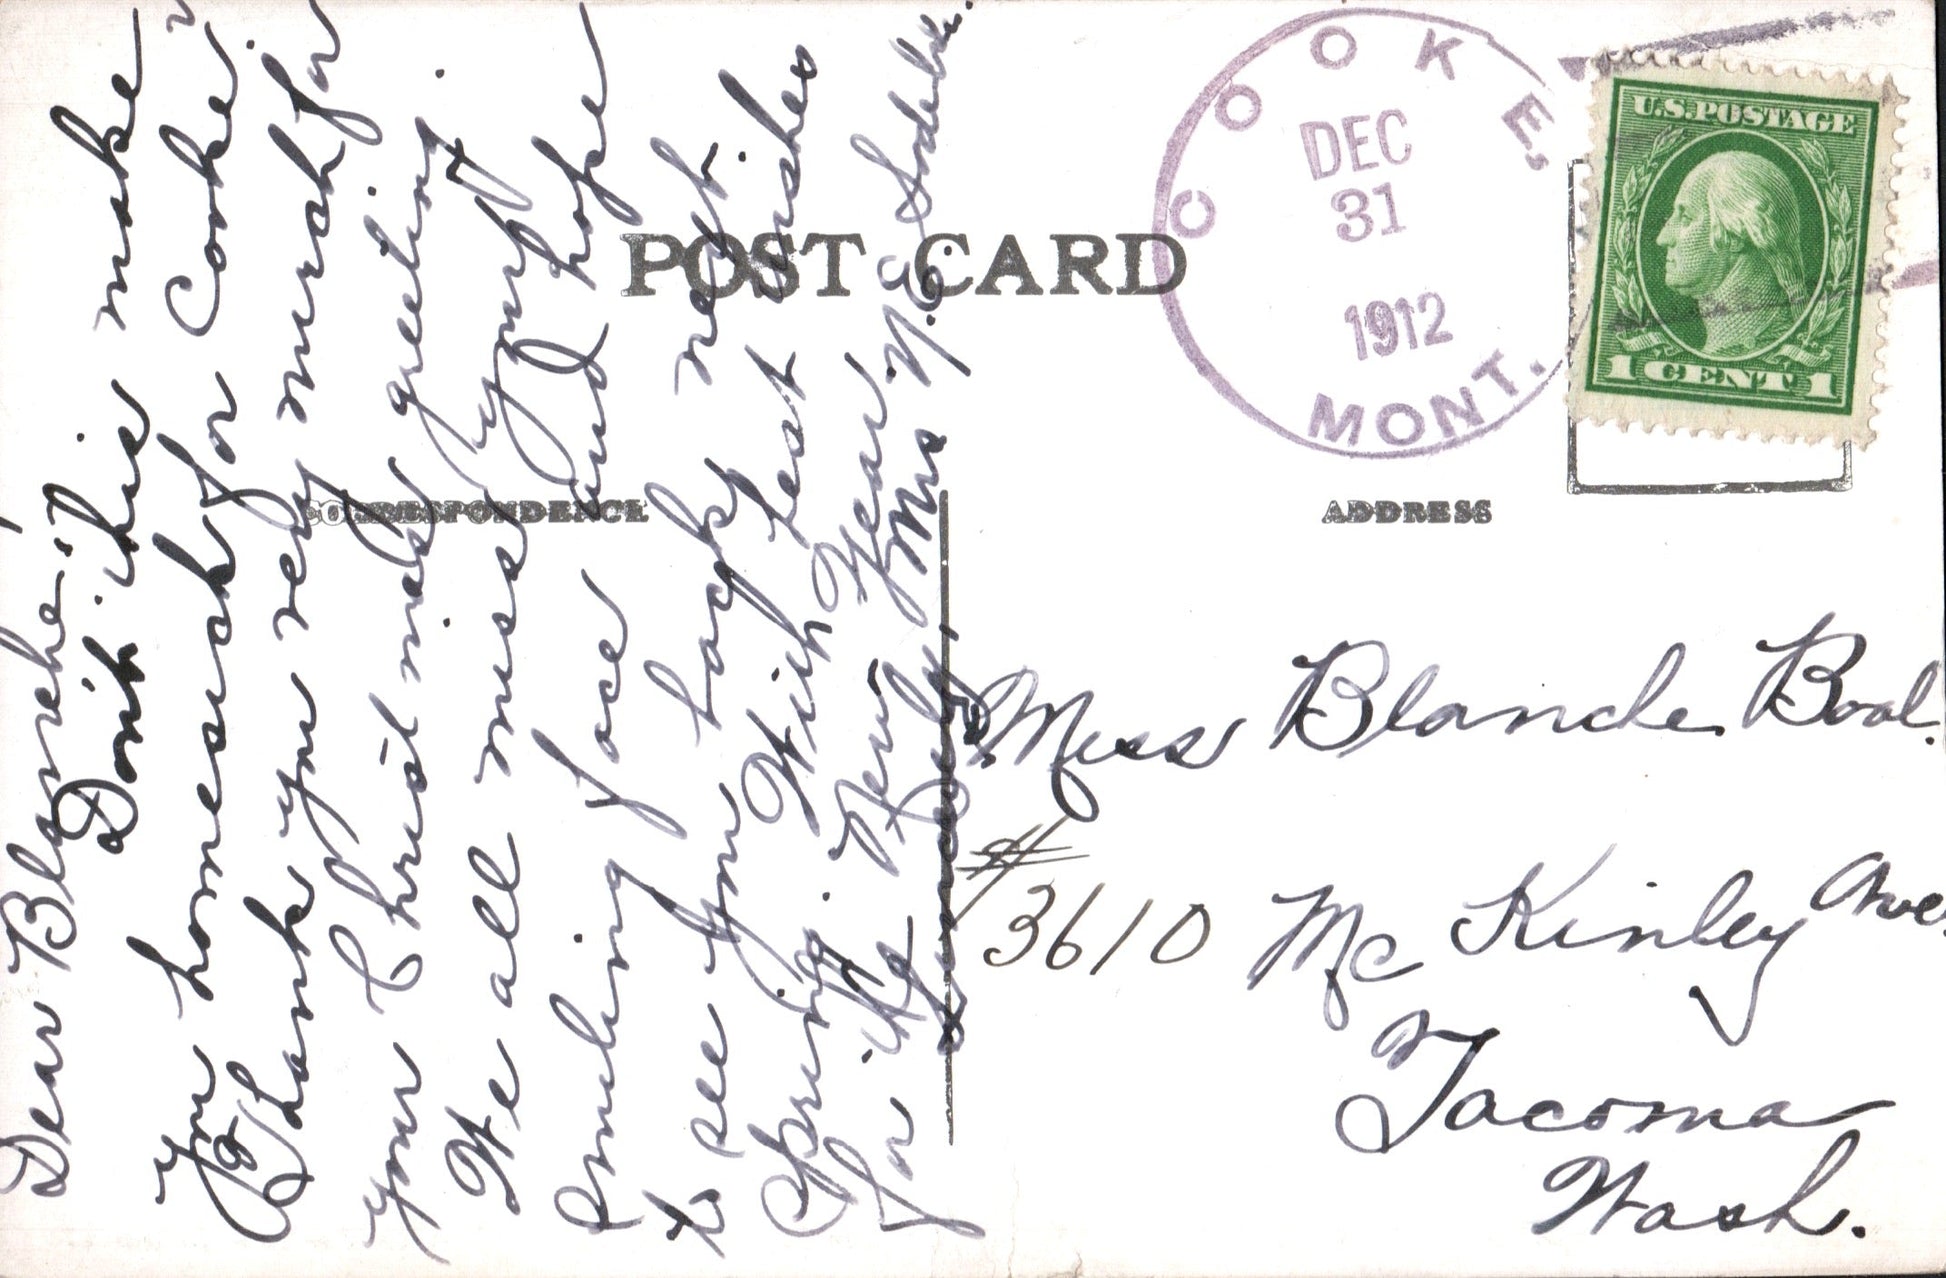 POST CARD
CORRESPONDENCE
ADDRESS
COOKE,
DEC
31
1912
MONT.
U.S. POSTAGE
1 CENT 1
Dear Blanche:"
Don't this make
you homesick for Cooke?
Thank you very much for
your Christmas greeting
We all miss your
smiling face and hope
to see you back next
Spring. With best wishes
for the New Year
Sincerely, Mrs N. E.
Miss Blanche Boal.
# 3610 McKinley Ave.
Tacoma
Wash.